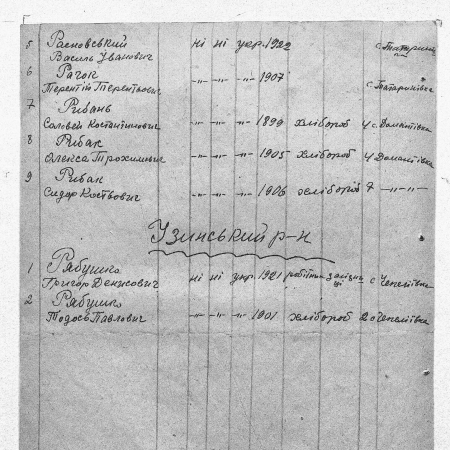 5 Расновський
Василь Иванович ні ні укр. 1922 с. Татаринів
6 Рагок
Терентій Терентьович -"- -"- -"- 1907 с Татаринівка
7 Рибань
Соловей Костантинович -"- -"- -"- 1899 хлібороб 4 с. Домантівка
8 Рибак
Олекса Трохимович -"- -"- -"- 1905 хлібороб 4 Домантівка
9 Рибак
Сидор Костьович -"- -"- -"- 1906 хлібороб 7 -"- -"-
Узинський р-н
1 Рябушко
Григор Денисович ні ні укр. 1921 робітн. заліщиці с Чепелівка
2 Рябушко
Тодось Павлович -"- -"- -"- 1901 хлібороб 2 с Чепелівка